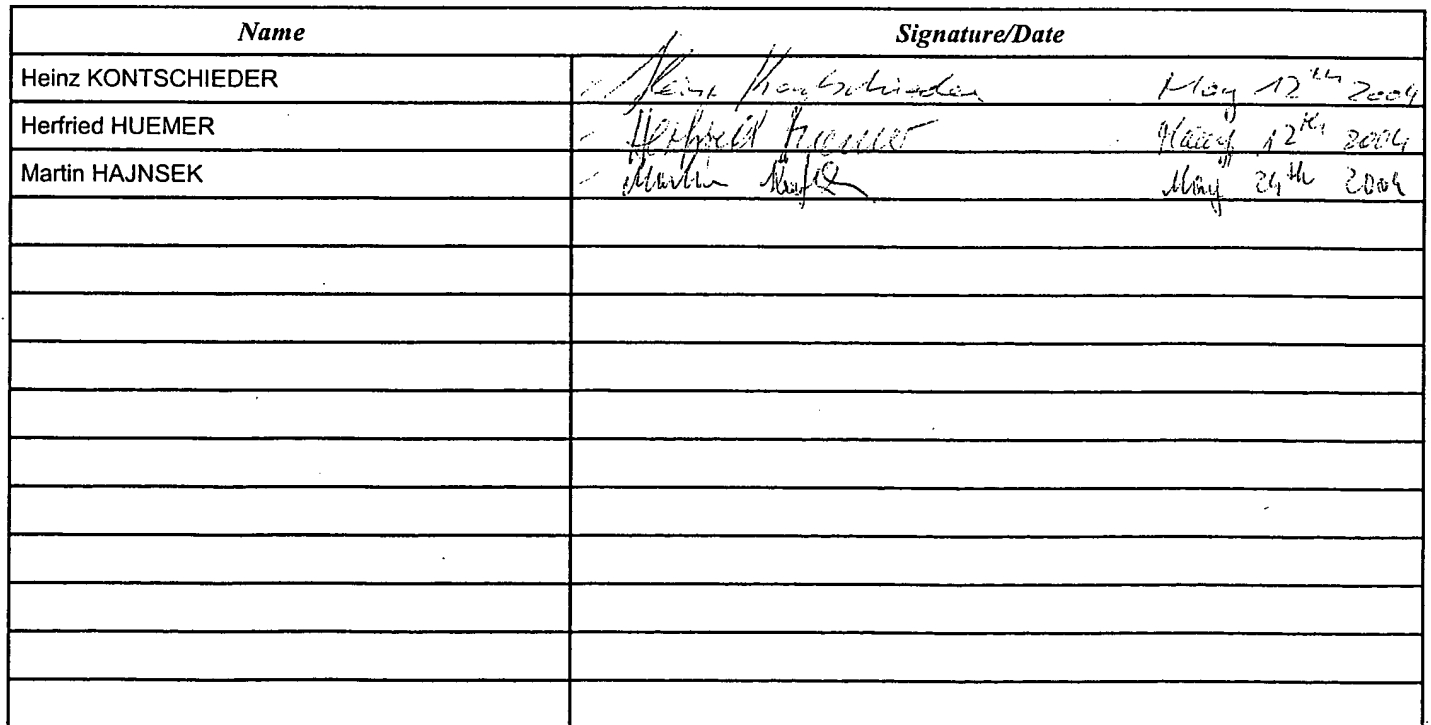 Name Signature/Date
Heinz KONTSCHIEDER Heinz Kontschieder May 12th 2004
Herfried HUEMER Herfried Huemer May 12th 2004
Martin HAJNSEK Martin May 24th 2004